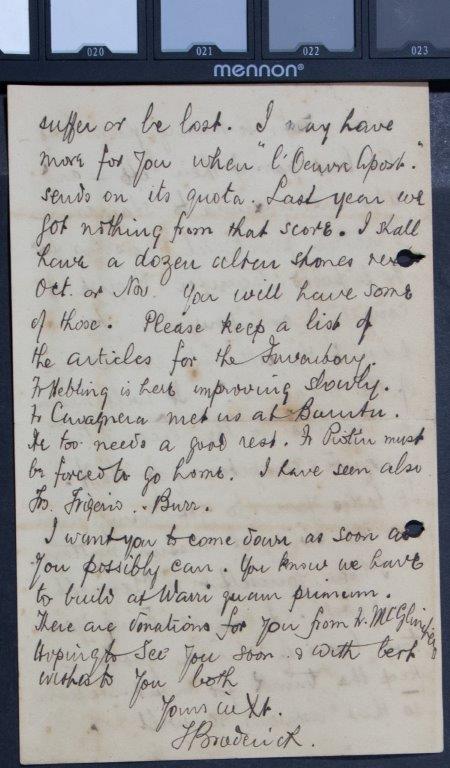 020 021 022 023
mennon®
suffer or be lost. I may have
more for you when "l'Oeuvre Apost."
sends on its quota. Last year we
got nothing from that score. I shall
have a dozen altar stones
Oct. or Nov. You will have some
of those. Please keep a list of
the articles for the Inventory.
Fr Hebling is here improving slowly.
Fr Cavagnera met us at Burutu.
He too needs a good rest. Fr Piotin must
be forced to go home. I have seen also
Frs. Frigerio. Burr.
I want you to come down as soon as
you possibly can. You know we have
to build at Warri quam primum.
There are donations for you from Fr. McGlinchey
Hoping to see you soon & with best
wishes to you both
Yours in Xt.
T Broderick.